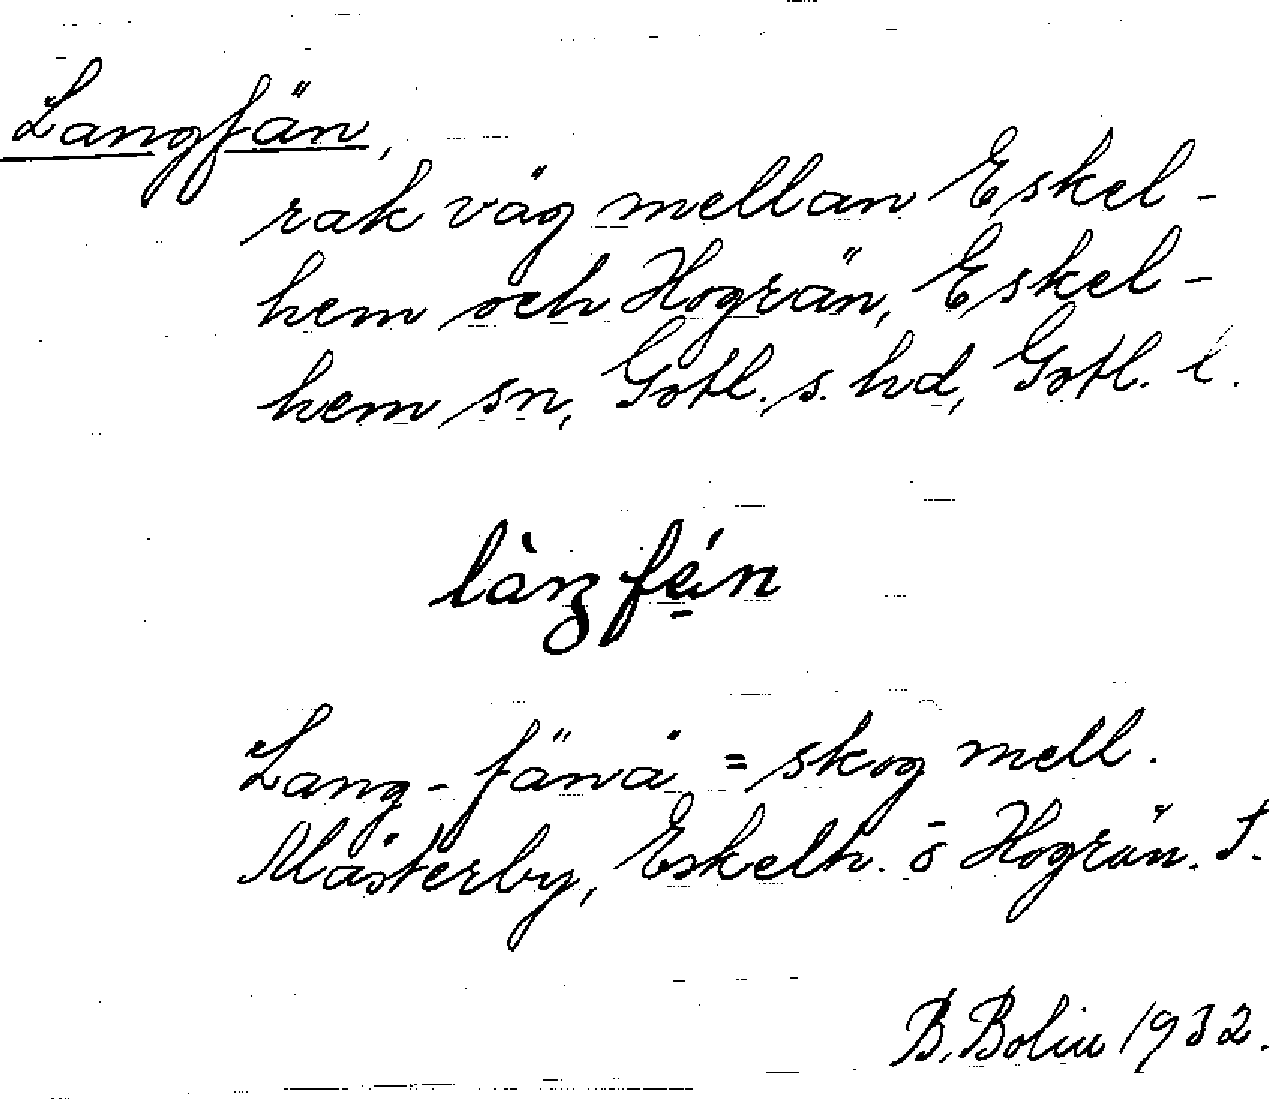 Langfän,
rak väg mellan Eskel-
hem och Hogrän, Eskel-
hem sn, Gotl. s. hd, Gotl. l.
làŋ fén
Lang-fänå = skog mell.
Mästerby, Eskelh. o Hogrän. S.
B. Bolin 1932.